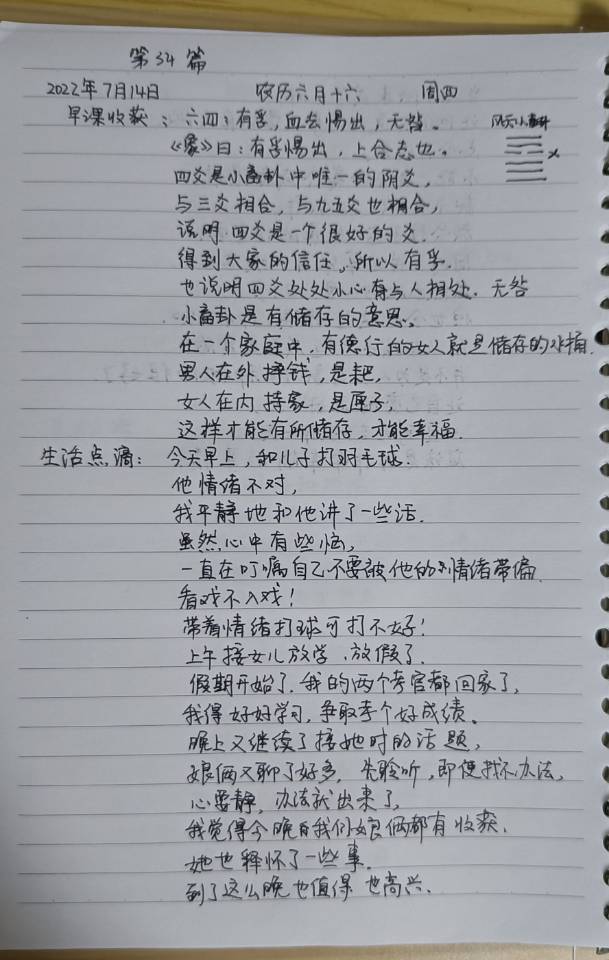 第34篇
2022年7月14日 农历六月十六 周四
早课收获：六四：有孚，血去惕出，无咎。 风天小畜卦
《象》曰：有孚惕出，上合志也。
四爻是小畜卦中唯一的阴爻，
与三爻相合，与九五爻也相合，
说明四爻是一个很好的爻.
得到大家的信任。所以有孚.
也说明四爻处处小心有与人相处. 无咎
小畜卦是有储存的意思。
在一个家庭中，有德行的女人就是储存的水桶.
男人在外挣钱，是耙.
女人在内持家，是匣子，
这样才能有所储存，才能幸福.
生活点滴：今天早上，和儿子打羽毛球.
他情绪不对，
我平静地和他讲了一些话.
虽然心中有些恼，
一直在叮嘱自己不要被他的情绪带偏
看戏不入戏！
带着情绪打球可打不好！
上午接女儿放学，放假了.
假期开始了.我的两个考官都回家了，
我得好好学习，争取考个好成绩。
晚上又继续了接她时的话题，
娘俩又聊了好多，先聆听，即使找不办法，
心要静，办法就出来了，
我觉得今晚我们娘俩都有收获.
她也释怀了一些事.
到了这么晚也值得 也高兴.